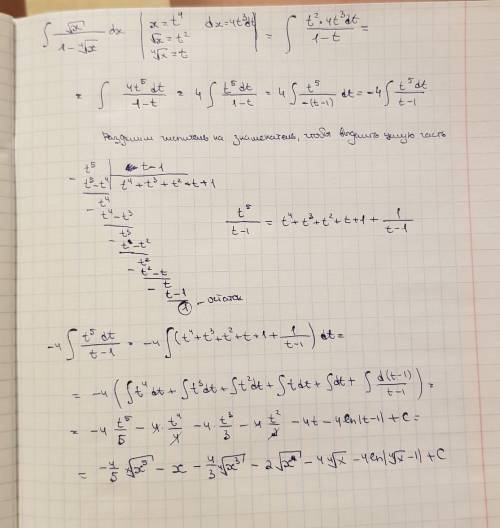 ∫ √x / (1 - ⁴√x) dx | x = t⁴ dx = 4t³dt | = ∫ t² · 4t³dt / (1 - t) =
√x = t²
⁴√x = t
= ∫ 4t⁵dt / (1 - t) = 4 ∫ t⁵dt / (1 - t) = 4 ∫ t⁵ / (-(t-1)) dt = -4 ∫ t⁵dt / (t-1)
Разделим числитель на знаменатель, чтобы выделить целую часть
- t⁵ | t - 1
t⁵ - t⁴ | t⁴ + t³ + t² + t + 1
- t⁴
t⁴ - t³
- t³
t³ - t²
- t²
t² - t
- t
t - 1
1 - остаток
t⁵ / (t-1) = t⁴ + t³ + t² + t + 1 + 1 / (t-1)
-4 ∫ t⁵dt / (t-1) = -4 ∫ (t⁴ + t³ + t² + t + 1 + 1 / (t-1)) dt =
= -4 (∫ t⁴dt + ∫ t³dt + ∫ t²dt + ∫ tdt + ∫ dt + ∫ d(t-1) / (t-1)) =
= -4 t⁵/5 - 4 · t⁴/4 - 4 · t³/3 - 4 t²/2 - 4t - 4 ln|t-1| + C =
= -4/5 ⁴√x⁵ - x - 4/3 ⁴√x³ - 2 √x - 4 ⁴√x - 4 ln|⁴√x - 1| + C